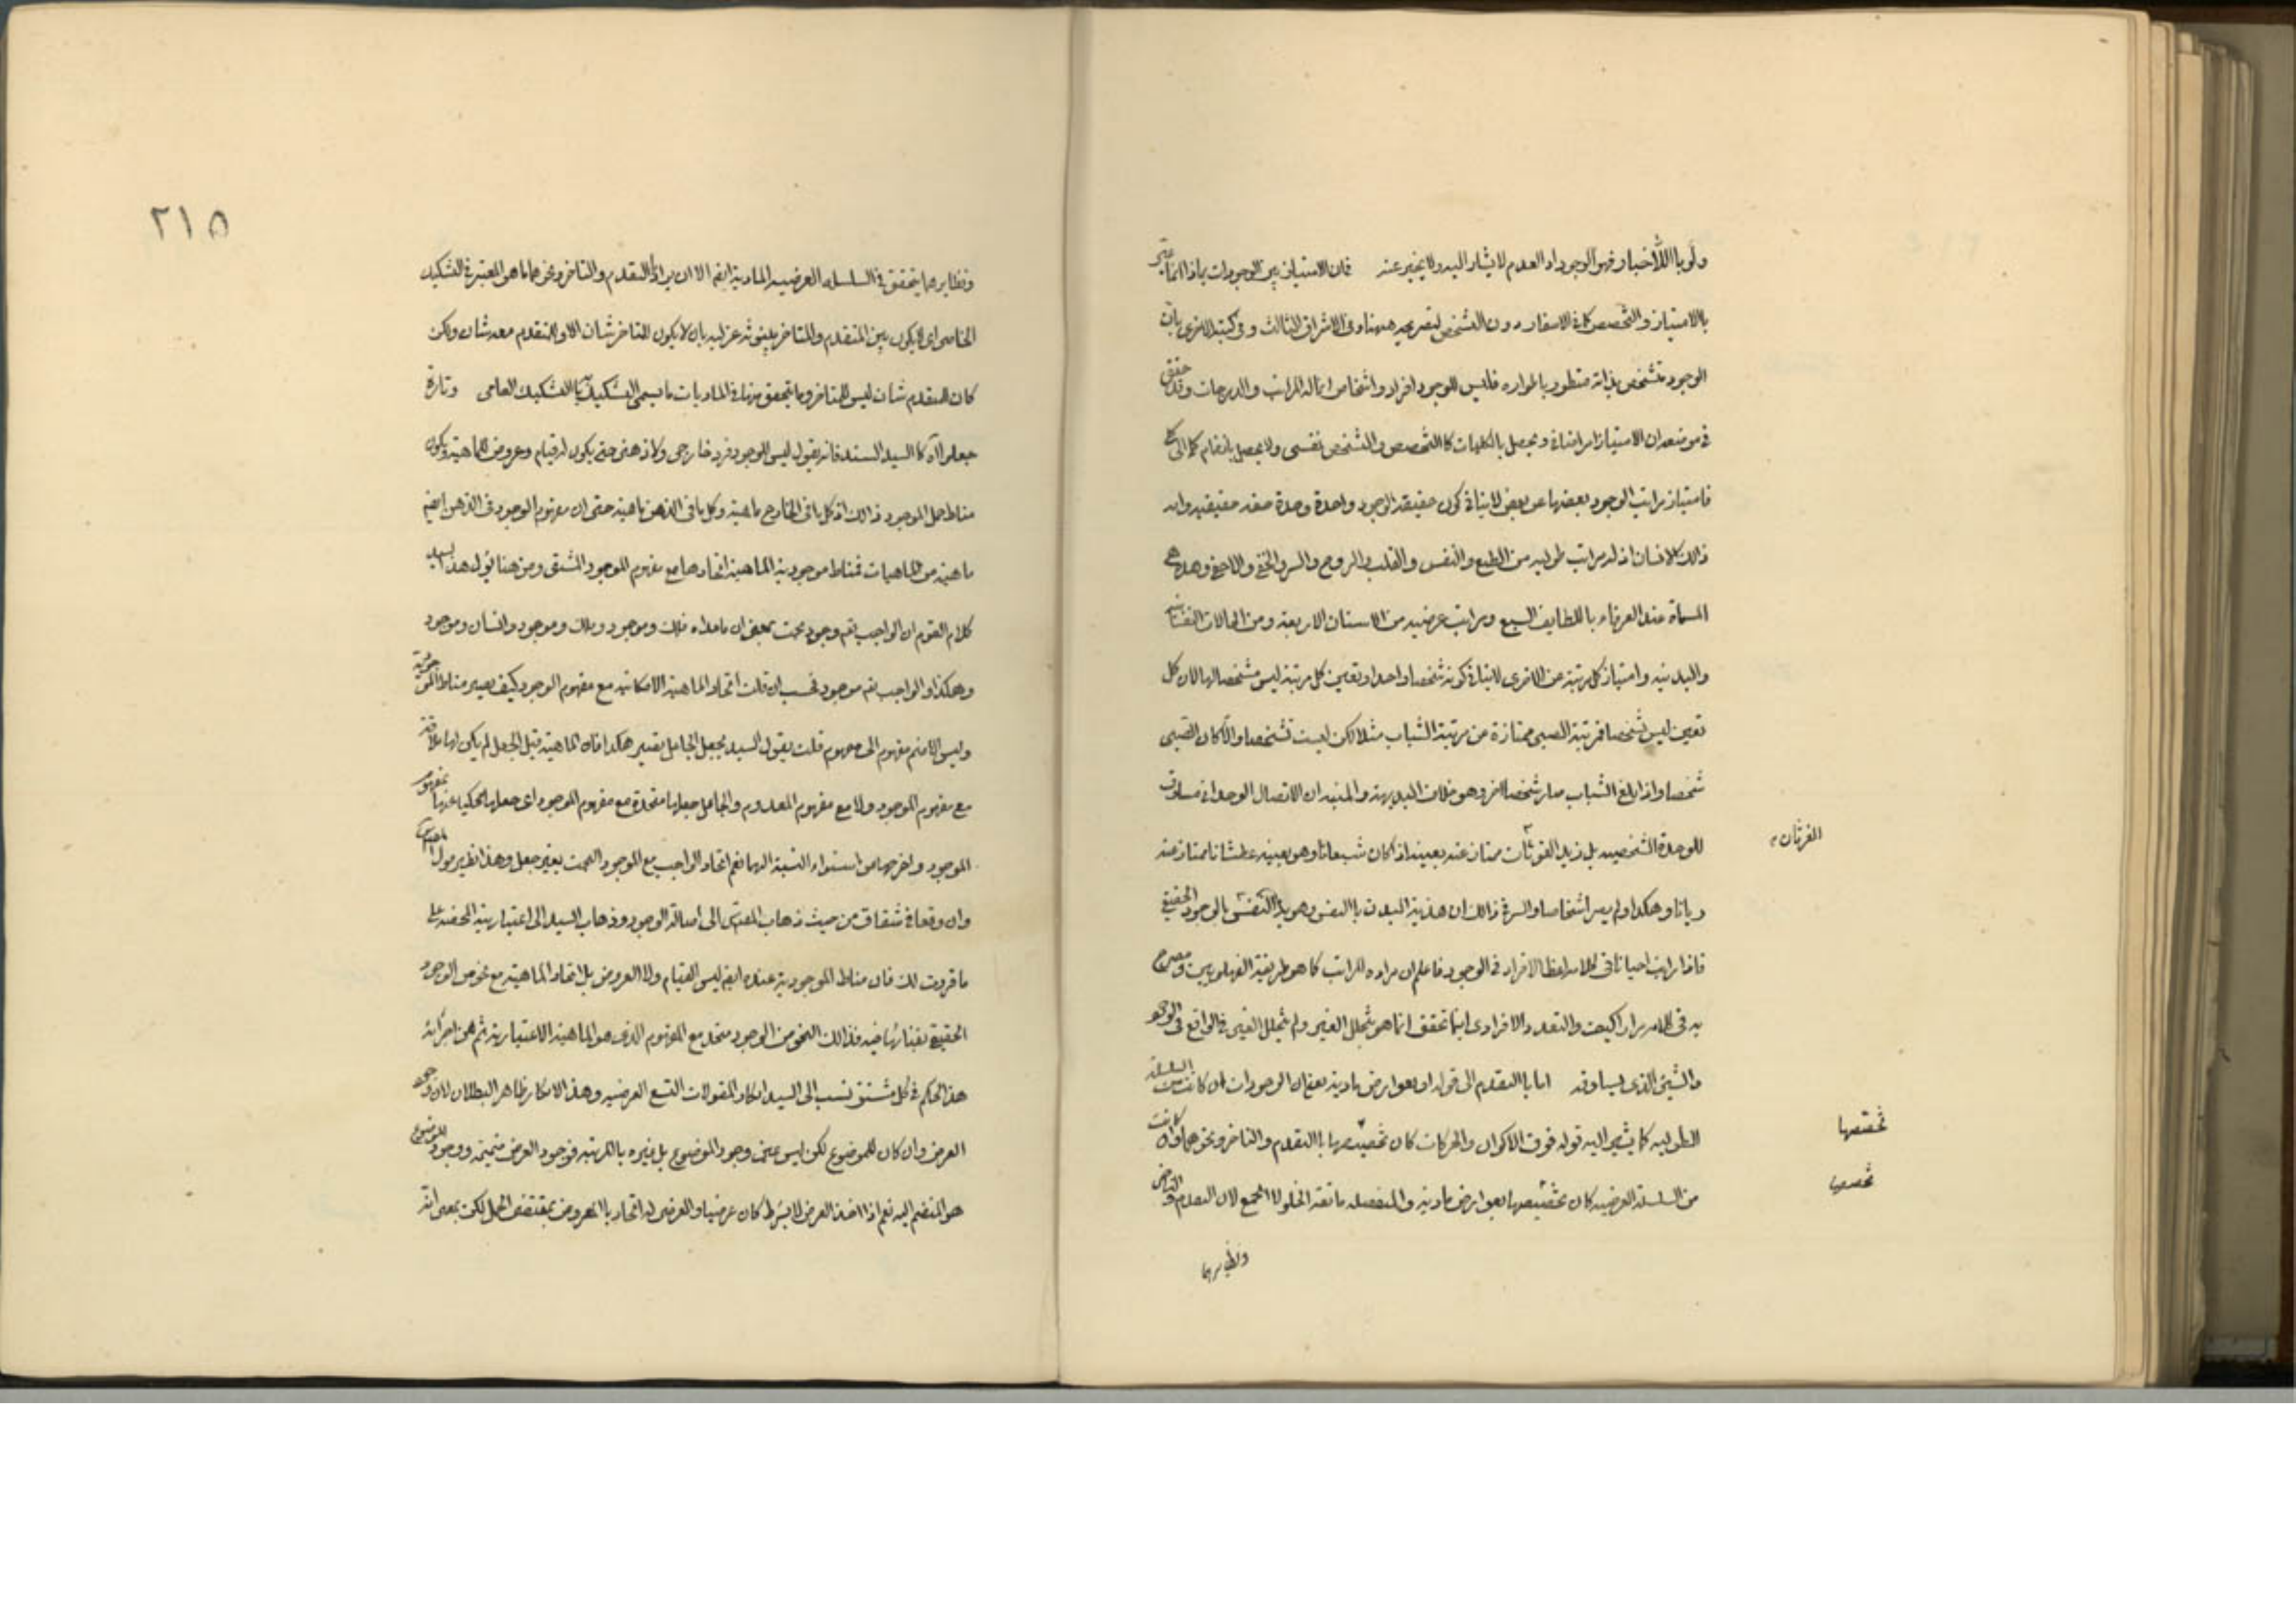 ولو باللاخبار فهو الوجود اذ العدم لا يشار اليه ولا يخبر عنه فان الامتياز بين الوجودات بماذا انما عبر
بالامتياز والتخصص كما فى الاسفار دون التشخص لتصريحه هيهنا وفى الاشراق الثالث وفى كتبه الاخرى بان
الوجود متشخص بذاته متطور باطواره فليس للوجود افراد واشخاص انما له المراتب والدرجات وقد حقق
فى موضعه ان الامتياز امر اضافى ويحصل بالكليات كالتخصص والتشخص نفسى ولا يحصل بانضمام كلى الى كلى
فامتياز مراتب الوجود بعضها عن بعض لا ينافى كون حقيقة الوجود واحدة وحدة حقة حقيقية وان
ذلك كالانسان اذ له مراتب طولية من الطبع والنفس والقلب والروح والسر والخفى والاخفى وهذه هى
المسماة عند العرفاء باللطايف السبع ومراتب عرضية من الاسنان الاربعة ومن الحالات النفسانية
والبدنية وامتياز كل مرتبة عن الاخرى لا ينافى كونه شخصا واحدا وتعين كل مرتبة ليس مشخصا لها لان كل
تعين ليس تشخصا فمرتبة الصبى ممتازة عن مرتبة الشباب مثلا لكن ليست تشخصا والا لكان الصبى
شخصا واذا بلغ الشباب صار شخصا اخر وهو خلاف البديهة والمتبه ان الاتصال الوحدانى مساوق
للوحدة الشخصية بل زيد الغرثان ممتاز عنه بعينه اذا كان شبعانا وهو بعينه عطشانا ممتاز عنه
الغرثان
ريانا وهكذا ولم يصر اشخاصا والسر فى ذلك ان هذية البدن بالنفس وهوية النفس بالوجود الحقيقى
فاذا رايت احيانا فى كلامه لفظ الافراد فى الوجود فاعلم ان مراده المراتب كما هو طريقة الفهلويين ومصرح
به فى كلامه مرارا كيف والتعدد الافرادى اينما تحقق انما هو بتخلل الغير ولم يتخلل الغير فى الواقع فى الوجود
والشيئ الذى يساوقه اما بالتقدم الى قوله او بعوارض مادية يعنى ان الوجودات ان كانت من السلسلة
الطولية كما يشير اليه قوله فوق الاكوان والحركات كان تخصصها بالتقدم والتاخر ونحوهما وان كانت
تخصصها
من السلسلة العرضية كان تخصصها بعوارض مادية والمنفصلة مانعة الخلو لا الجمع لان التقدم والتاخر
تخصصها
ونظايرهما
٢١٥
ونظايرهما يتحقق فى السلسلة العرضية المادية ايضا الا ان يراد بالتقدم والتاخر ونحوهما ما هو المعتبر فى التشكيك
الخاصى اى لا يكون بين المتقدم والمتاخر بينونة عزلية بان لا يكون للمتاخر شان الا وللمتقدم معه شان ولكن
كان للمتقدم شان ليس للمتاخر وما يتحقق منها فى الماديات ما يسمى التشكيك به بالتشكيك العامى وتارة
جعلوا آه كالسيد السند فانه يقول ليس للوجود فرد خارجى ولا ذهنى حتى يكون له قيام وعروض للماهية ويكون
مناط حمل الموجود ذلك اذ كل ما فى الخارج ماهية وكل ما فى الذهن ماهية حتى ان مفهوم الوجود فى الذهن ايضا
ماهية من الماهيات فمناط موجودية الماهية اتحادها مع مفهوم الموجود المشتق ومن هنا يؤل هذا السيد
كلام القوم ان الواجب تعم وجود بحت بمعنى ان ما عداه فلك وموجود وملك وموجود وانسان وموجود
وهكذا والواجب تعم موجود فحسب ان قلت اتحاد الماهية الامكانية مع مفهوم الوجود كيف يصير مناط الموجودية
وليس الا ضم مفهوم الى مفهوم قلت يقول السيد بجعل الجاعل يصير هكذا فان الماهية قبل الجعل لم يكن لها علاقة
مع مفهوم الموجود ولا مع مفهوم المعدوم والجاعل جعلها متحدة مع مفهوم الموجود اى جعلها محكيا عنها بمفهوم
الموجود واخرجها من استواء النسبة اليها نعم اتحاد الواجب مع الموجود البحت بغير جعل وهذا نظير مول المصنف
وان وقعا فى شقاق من حيث ذهاب المصنف الى اصالة الوجود وذهاب السيد الى اعتباريته المحضة على
ما قررت لك فان مناط الموجودية عنده ايضا ليس القيام ولا العروض بل اتحاد الماهية مع نحو من الوجود
الحقيقى بفنائها فيه فذلك النحو من الوجود متحد مع المفهوم الذى هو الماهية الاعتبارية ثم من اجرائه
هذا الحكم فى كل مشتق نسب الى السيد انكار المقولات التسع العرضية وهذا الانكار ظاهر البطلان لان وجود
العرض وان كان للموضوع لكن ليس عين وجود الموضوع بل غيره بالمرتبة فوجود العرض ضميمة ووجود الموضوع
هو المنضم اليه نعم اذا اخذ العرض لا بشرط كان عرضيا والعرضى له اتحاد بالمعروض بمقتضى الحمل لكن بمعنى انه